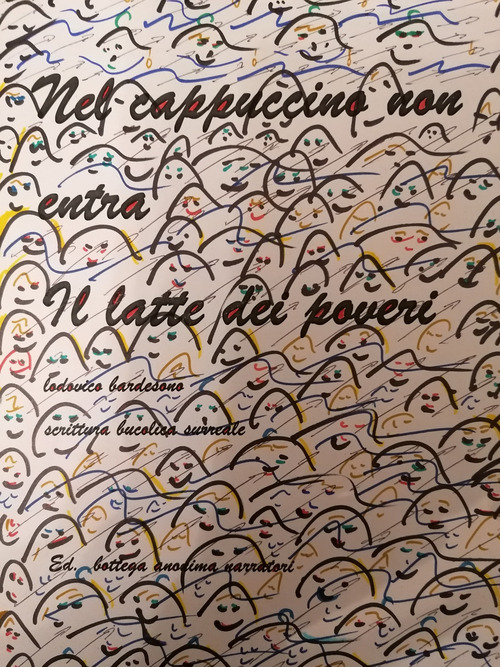 Nel cappuccino non
entra
Il latte dei poveri
lodovico bardesono
scrittura bucolica surreale
Ed. bottega anonima narratori